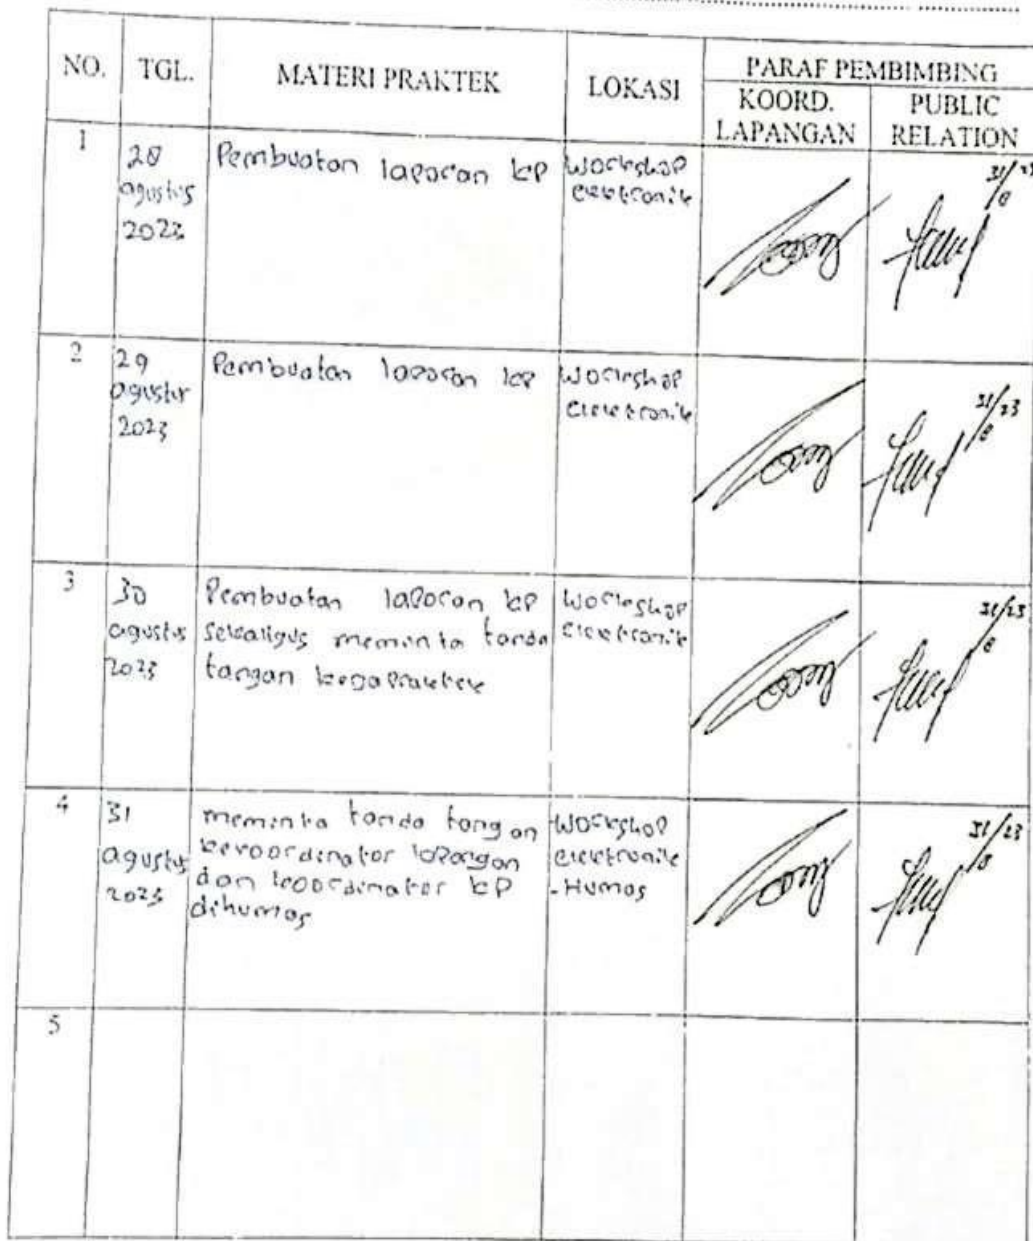 NO. TGL. MATERI PRAKTEK LOKASI PARAF PEMBIMBING
KOORD. LAPANGAN PUBLIC RELATION
1 28 agustus 2023
Pembuatan laporan kp
Workshop
elektronik
31/8 23
2 29 agustus 2023
Pembuatan laporan kp
Workshop
elektronik
31/8 23
3 30 agustus 2023
Pembuatan laporan kp
sekaligus meminta tanda
tangan
Workshop
elektronik
31/8 23
4 31 agustus 2023
meminta tanda tangan
lapangan
dan koordinator kp
dihumas
Workshop
elektronik
-Humas
31/8 23
5